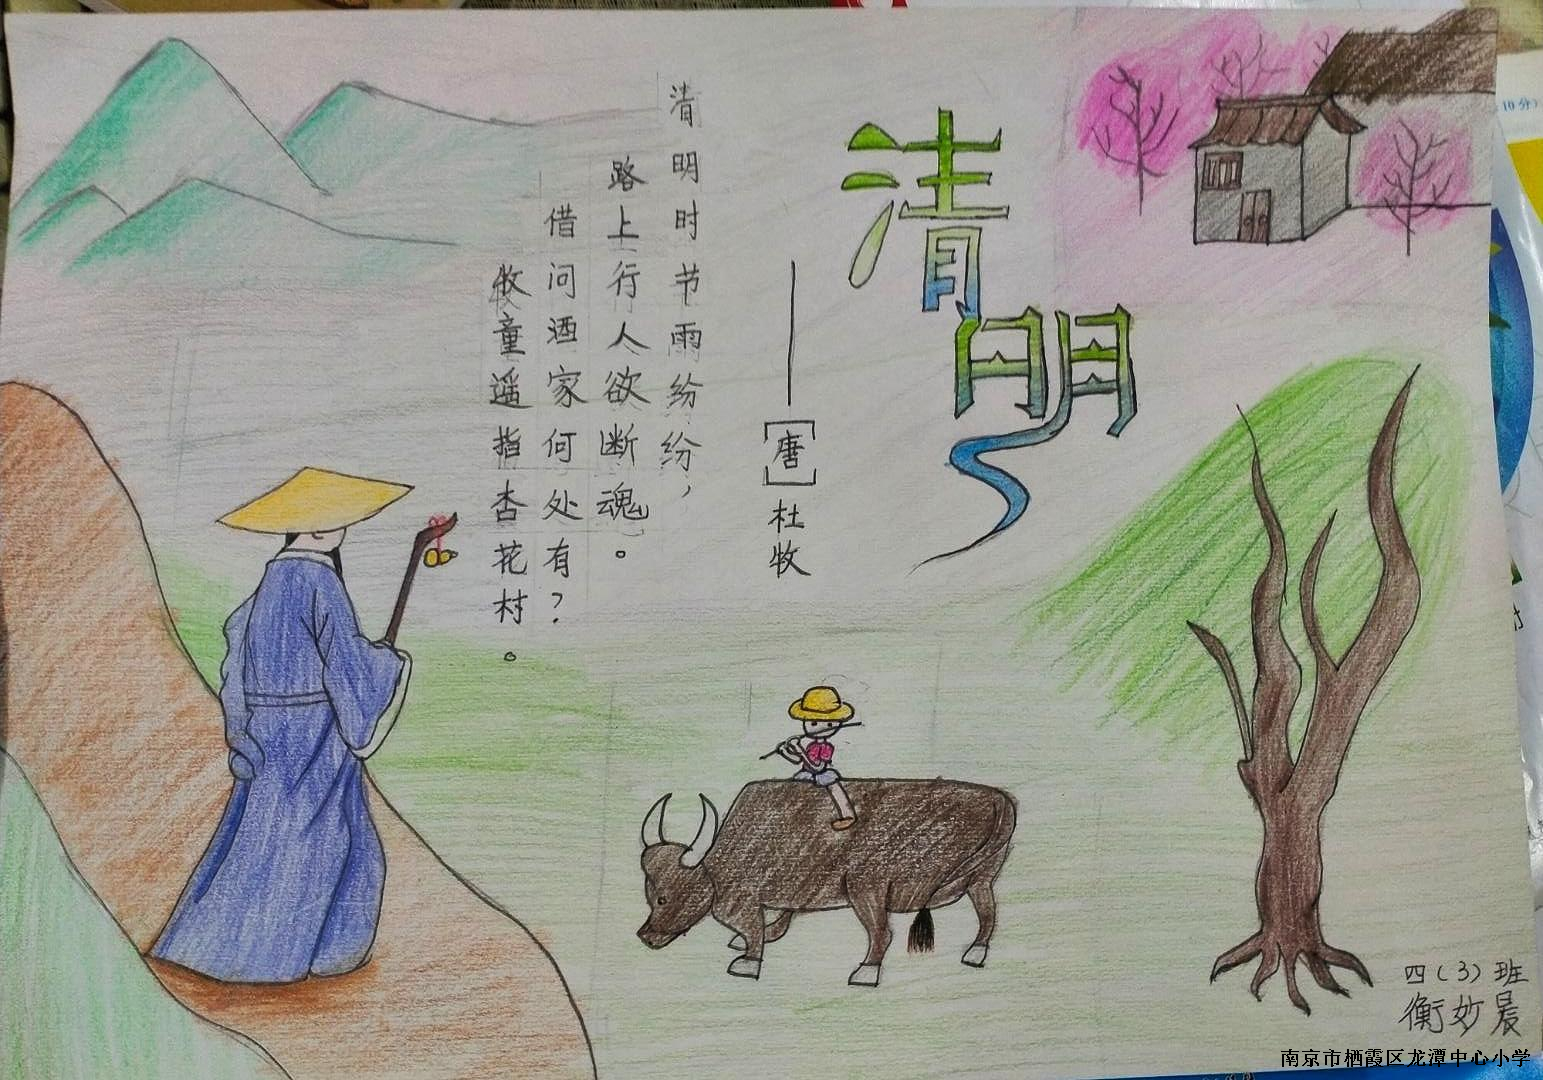 清明
——[唐]杜牧
清明时节雨纷纷，
路上行人欲断魂。
借问酒家何处有？
牧童遥指杏花村。
四（3）班
衡妙晨
南京市栖霞区龙潭中心小学
10分）